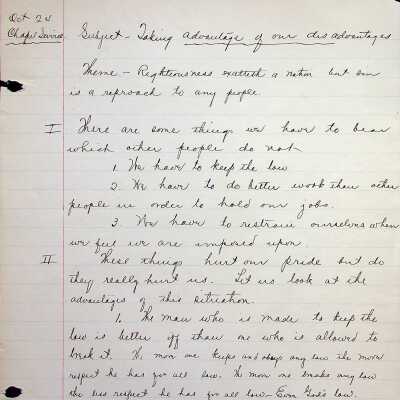 Oct 24
Chapel Service
Subject - Taking advantage of our disadvantages
Theme - Righteousness exalteth a nation but sin
is a reproach to any people
I There are some things we have to bear
which other people do not
1. We have to keep the law
2. We have to do better work than other
people in order to hold our jobs.
3. We have to restrain ourselves when
we feel we are imposed upon.
II These things hurt our pride but do
they really hurt us. Let us look at the
advantages of this situation.
1. The man who is made to keep the
law is better off than one who is allowed to
break it. The more one keeps and obeys any law the more
respect he has for all law. The more one breaks any law
the less respect he has for all law - Even God's law.